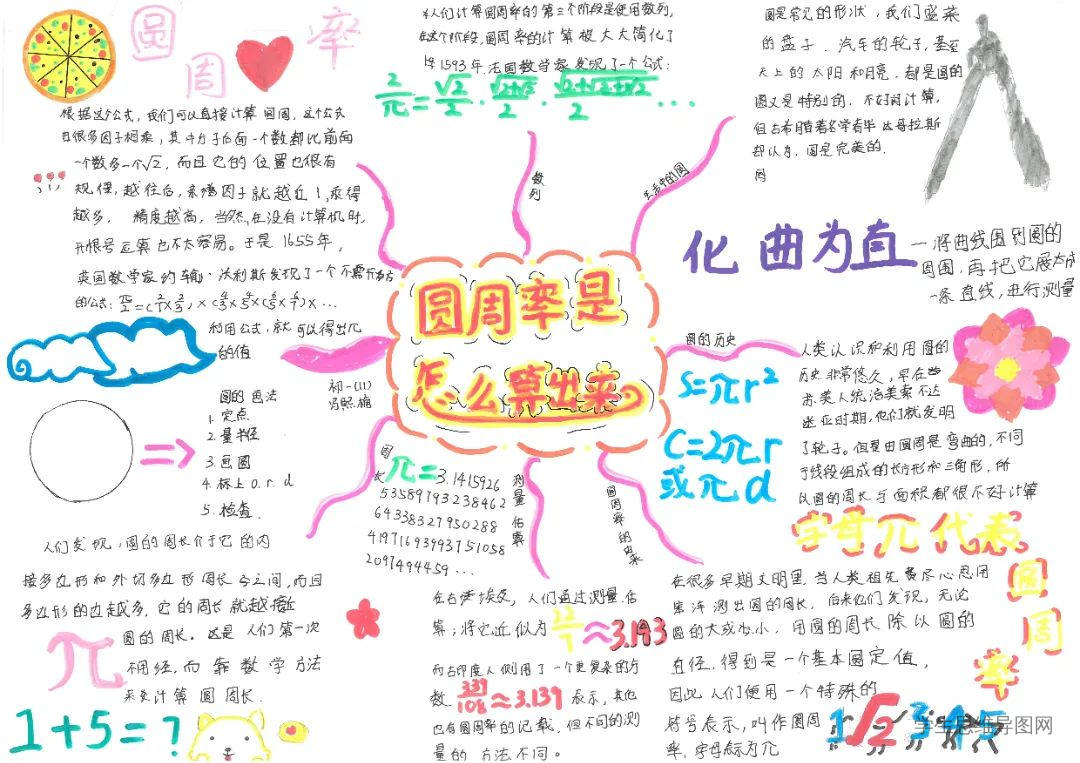 圆周率
人们计算圆周率的第三个阶段是使用数列,
在这个阶段,圆周率的计算被大大简化了
1593年,法国数学家发现了一个公式:
2/π=√2/2·√(2+√2)/2·√(2+√(2+√2))/2···
根据这公式,我们可以直接计算圆周,这个公式
因很多因子相乘,其中分子后面一个数都比前面
一个数多一个√2,而且它的位置也很有
规律,越往后,乘积因子就越近1,乘得
越多,精度越高,当然,在没有计算机时,
开根号运算也不太容易。于是1655年,
英国数学家约翰·沃利斯发现了一个不需开方
的公式:
利用公式,就可以得出几
的值
数列
生活中的圆
圆是常见的形状,我们盛菜
的盘子、汽车的轮子,甚至
天上的太阳和月亮,都是圆的
圆又是特别的,不好计算,
但古希腊著名学者毕达哥拉斯
却认为,圆是完美的.
化曲为直
一将曲线围到圆的
周围,再把它展太成
一条直线,进行测量
圆周率是
怎么算出来
初一(11)
冯照楠
圆的画法
1.定点
2.量半径
3.画圆
4.标上o.r.d
5.检查.
圆的历史
S=πr²
C=2πr
或πd
人类认识和利用圆的
历史非常悠久,早在
苏美人统治美索不达
迷亚时期,他们就发明
了轮子。但是由圆周是弯曲的,不同
于线段组成的长方形和三角形,所
以圆的周长与面积都很不好计算
人们发现,圆的周长介于它的内
接多边形和外切多边形周长令之间,而且
多边形的边越多,它的周长就越接
圆的周长。这是人们第一次
不用经,而靠数学方法
来来计算圆周长.
π
1+5=?
π=3.1415926
53589793238462
64338327950288
41971693993751058
2097494459...
测量估算
圆周率的由来
在古代埃及,人们通过测量估
算;将它近似为22/7≈3.143
而古印度人似用了一个更复杂的方
数339/108≈3.139表示,其他
也有圆周率的记载,但不同的测
量的方法不同。
字母π代表
圆周率
在很多早期文明里,当人类祖先费尽心思用
绳子测出圆的周长,后来他们发现,无论
圆的大或小,用圆的周长除以圆的
直径,得到是一个基本固定值,
因此人们使用一个特殊的
符号表示,叫作圆周
率,字母标为π
1√2345
学生思维导图网